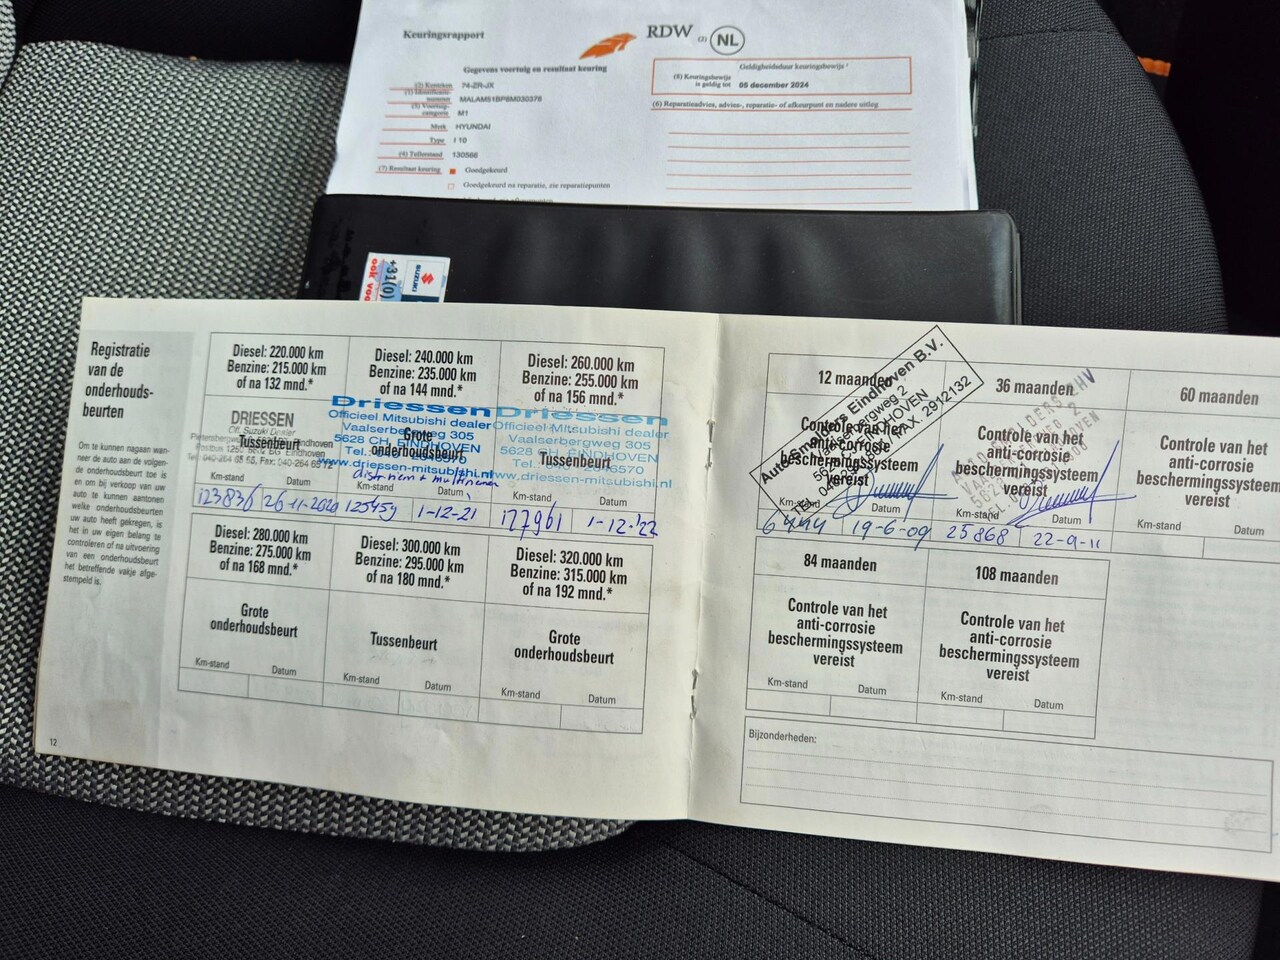 Keuringsrapport
RDW (3) NL
Gegevens voertuig en resultaat keuring
(2) Kenteken 74-ZR-JX
(1) Identificatie-
nummer MALAM51BP8M030376
(5) Voertuig-
categorie M1
Merk HYUNDAI
Type I 10
(4) Tellerstand 130566
(7) Resultaat keuring Goedgekeurd
Goedgekeurd na reparatie, zie reparatiepunten
Geldigheidsduur keuringsbewijs
(8) Keuringsbewijs
is geldig tot 05 december 2024
(6) Reparatieadvies, advies-, reparatie- of afkeurpunt en nadere uitleg
SUZUKI
+31(0)
ook voo
Registratie
van de
onderhouds-
beurten
Om te kunnen nagaan wan-
neer de auto aan de volgen-
de onderhoudsbeurt toe is
en om bij verkoop van uw
auto te kunnen aantonen
welke onderhoudsbeurten
uw auto heeft gekregen, is
het in uw eigen belang te
controleren of na uitvoering
van een onderhoudsbeurt
het betreffende vakje afge-
stempeld is.
12
Diesel: 220.000 km
Benzine: 215.000 km
of na 132 mnd.*
DRIESSEN
Off. Suzuki Dealer
Tussenbeurt
Km-stand Datum
123836 26-11-2020
Diesel: 240.000 km
Benzine: 235.000 km
of na 144 mnd.*
Driessen
Officieel Mitsubishi dealer
Vaalserbergweg 305
5628 CH EINDHOVEN
Grote
onderhoudsbeurt
www.driessen-mitsubishi.nl
Km-stand Datum
125459 1-12-21
Diesel: 260.000 km
Benzine: 255.000 km
of na 156 mnd.*
Driessen
Officieel Mitsubishi dealer
Vaalserbergweg 305
5628 CH EINDHOVEN
Tussenbeurt
www.driessen-mitsubishi.nl
Km-stand Datum
127961 1-12-'22
Diesel: 280.000 km
Benzine: 275.000 km
of na 168 mnd.*
Grote
onderhoudsbeurt
Km-stand Datum
Diesel: 300.000 km
Benzine: 295.000 km
of na 180 mnd.*
Tussenbeurt
Km-stand Datum
Diesel: 320.000 km
Benzine: 315.000 km
of na 192 mnd.*
Grote
onderhoudsbeurt
Km-stand Datum
12 maanden
Controle van het
anti-corrosie
beschermingssysteem
vereist
Eindhoven B.V.
FAX 2912132
Km-stand Datum
6444 19-6-09
36 maanden
Controle van het
anti-corrosie
beschermingssysteem
vereist
Km-stand Datum
25868 22-9-11
60 maanden
Controle van het
anti-corrosie
beschermingssysteem
vereist
Km-stand Datum
84 maanden
Controle van het
anti-corrosie
beschermingssysteem
vereist
Km-stand Datum
108 maanden
Controle van het
anti-corrosie
beschermingssysteem
vereist
Km-stand Datum
Bijzonderheden: